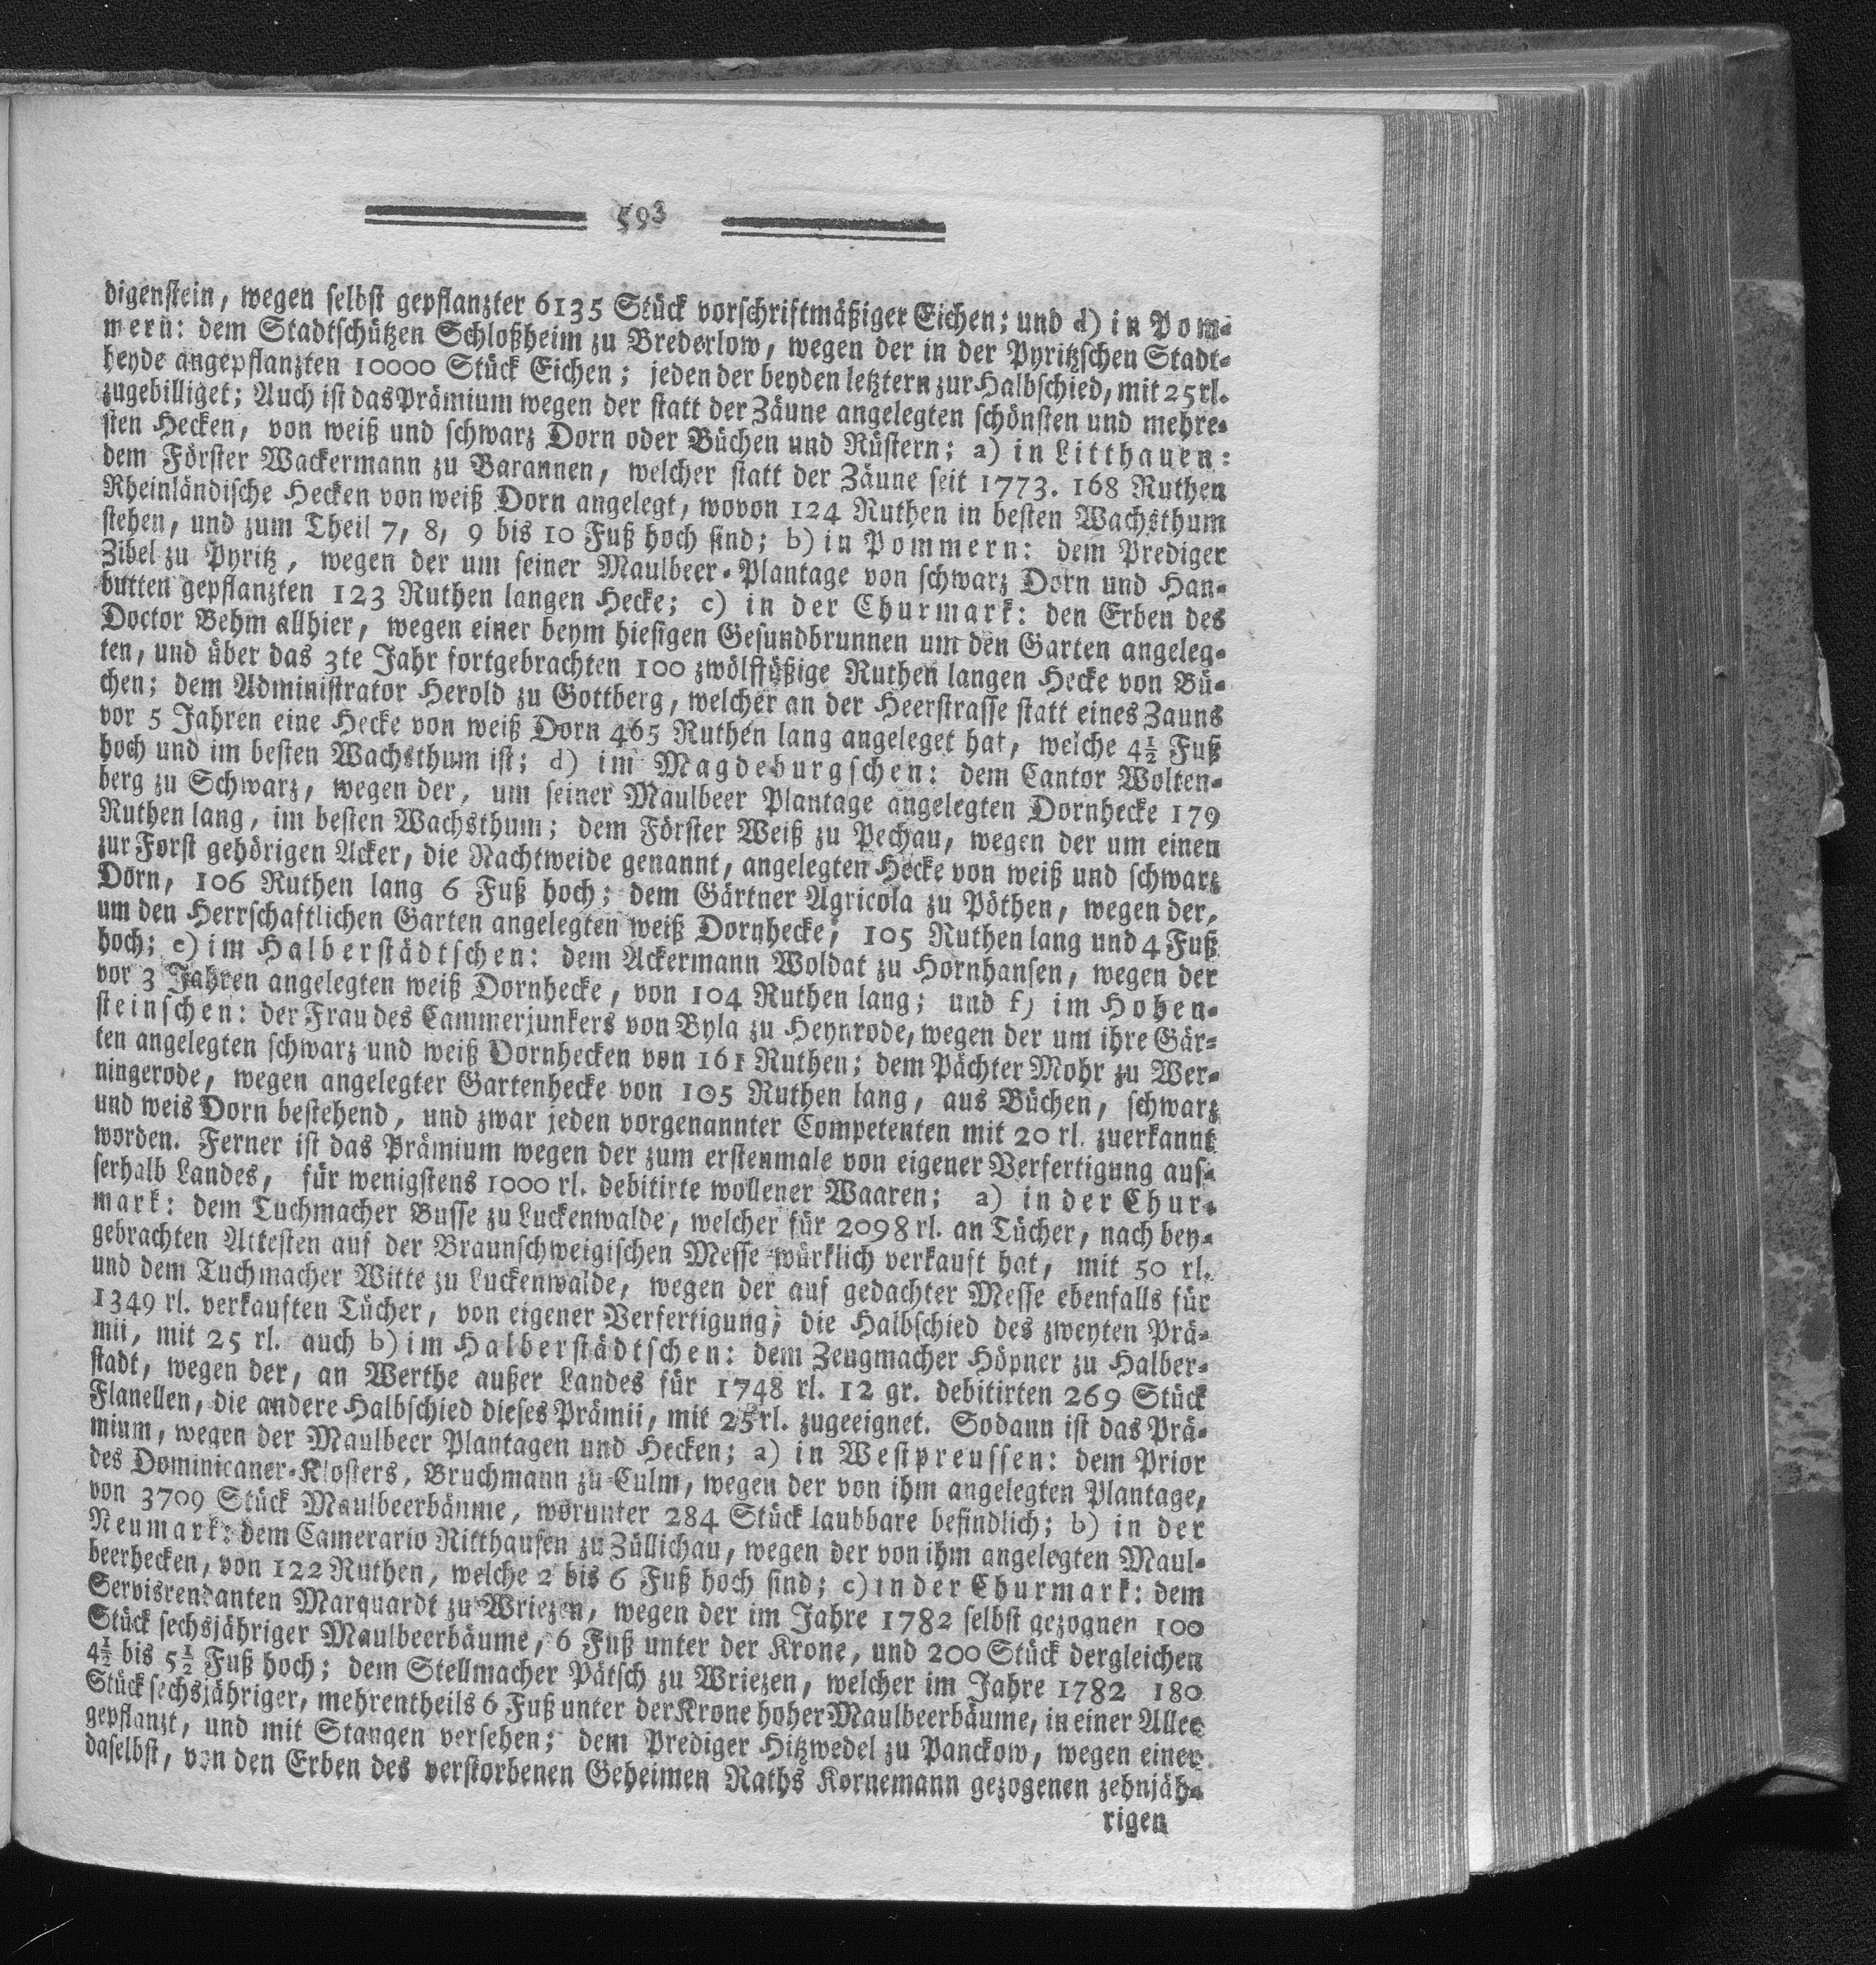 593
digenstein, wegen selbst gepflanzter 6135 Stück vorschriftmäßiger Eichen; und d) in Pom-
mern: dem Stadtschützen Schloßheim zu Brederlow, wegen der in der Pyritzschen Stadt-
heyde angepflanzten 10000 Stück Eichen; jeden der beyden letztern zur Halbschied, mit 25 rl.
zugebilliget; Auch ist das Prämium wegen der statt der Zäune angelegten schönsten und mehre-
sten Hecken, von weiß und schwarz Dorn oder Büchen und Rüstern; a) in Litthauen:
dem Förster Wackermann zu Barannen, welcher statt der Zäune seit 1773. 168 Ruthen
Rheinländische Hecken von weiß Dorn angelegt, wovon 124 Ruthen in besten Wachsthum
stehen, und zum Theil 7, 8, 9 bis 10 Fuß hoch sind; b) in Pommern: dem Prediger
Zibel zu Pyritz, wegen der um seiner Maulbeer-Plantage von schwarz Dorn und Han-
butten gepflanzten 123 Ruthen langen Hecke; c) in der Churmark: den Erben des
Doctor Behm allhier, wegen einer beym hiesigen Gesundbrunnen um den Garten angeleg-
ten, und über das 3te Jahr fortgebrachten 100 zwölffüßige Ruthen langen Hecke von Bü-
chen; dem Administrator Herold zu Gottberg, welcher an der Heerstrasse statt eines Zauns
vor 5 Jahren eine Hecke von weiß Dorn 465 Ruthen lang angeleget hat, welche 4½ Fuß
hoch und im besten Wachsthum ist; d) im Magdeburgschen: dem Cantor Wolten-
berg zu Schwarz, wegen der, um seiner Maulbeer Plantage angelegten Dornhecke 179
Ruthen lang, im besten Wachsthum; dem Förster Weiß zu Pechau, wegen der um einen
zur Forst gehörigen Acker, die Nachtweide genannt, angelegten Hecke von weiß und schwarz
Dorn, 106 Ruthen lang 6 Fuß hoch; dem Gärtner Agricola zu Pöthen, wegen der,
um den Herrschaftlichen Garten angelegten weiß Dornhecke, 105 Ruthen lang und 4 Fuß
hoch; e) im Halberstädtschen: dem Ackermann Woldat zu Hornhausen, wegen der
vor 3 Jahren angelegten weiß Dornhecke, von 104 Ruthen lang; und f) im Hohen-
steinschen: der Frau des Cammerjunkers von Byla zu Heynrode, wegen der um ihre Gär-
ten angelegten schwarz und weiß Dornhecken von 161 Ruthen; dem Pächter Mohr zu Wer-
ningerode, wegen angelegter Gartenhecke von 105 Ruthen lang, aus Büchen, schwarz
und weis Dorn bestehend, und zwar jeden vorgenannter Competenten mit 20 rl. zuerkannt
worden. Ferner ist das Prämium wegen der zum erstenmale von eigener Verfertigung aus-
serhalb Landes, für wenigstens 1000 rl. debitirte wollener Waaren; a) in der Chur-
mark: dem Tuchmacher Busse zu Luckenwalde, welcher für 2098 rl. an Tücher, nach bey-
gebrachten Attesten auf der Braunschweigischen Messe würklich verkauft hat, mit 50 rl.
und dem Tuchmacher Witte zu Luckenwalde, wegen der auf gedachter Messe ebenfalls für
1349 rl. verkauften Tücher, von eigener Verfertigung; die Halbschied des zweyten Prä-
mii, mit 25 rl. auch b) im Halberstädtschen: dem Zeugmacher Höpner zu Halber-
stadt, wegen der, an Werthe außer Landes für 1748 rl. 12 gr. debitirten 269 Stück
Flanellen, die andere Halbschied dieses Prämii, mit 25 rl. zugeeignet. Sodann ist das Prä-
mium, wegen der Maulbeer Plantagen und Hecken; a) in Westpreussen: dem Prior
des Dominicaner-Klosters, Bruchmann zu Culm, wegen der von ihm angelegten Plantage,
von 3709 Stück Maulbeerbäume, worunter 284 Stück laubbare befindlich; b) in der
Neumark: dem Camerario Ritthausen zu Züllichau, wegen der von ihm angelegten Maul-
beerhecken, von 122 Ruthen, welche 2 bis 6 Fuß hoch sind; c) in der Churmark: dem
Servisrendanten Marquardt zu Wriezen, wegen der im Jahre 1782 selbst gezognen 100
Stück sechsjähriger Maulbeerbäume, 6 Fuß unter der Krone, und 200 Stück dergleichen
4½ bis 5½ Fuß hoch; dem Stellmacher Pätsch zu Wriezen, welcher im Jahre 1782 180
Stück sechsjähriger, mehrentheils 6 Fuß unter der Krone hoher Maulbeerbäume, in einer Allee
gepflanzt, und mit Stangen versehen; dem Prediger Hitzwedel zu Panckow, wegen einer
daselbst, von den Erben des verstorbenen Geheimen Raths Kornemann gezogenen zehnjäh-
rigen